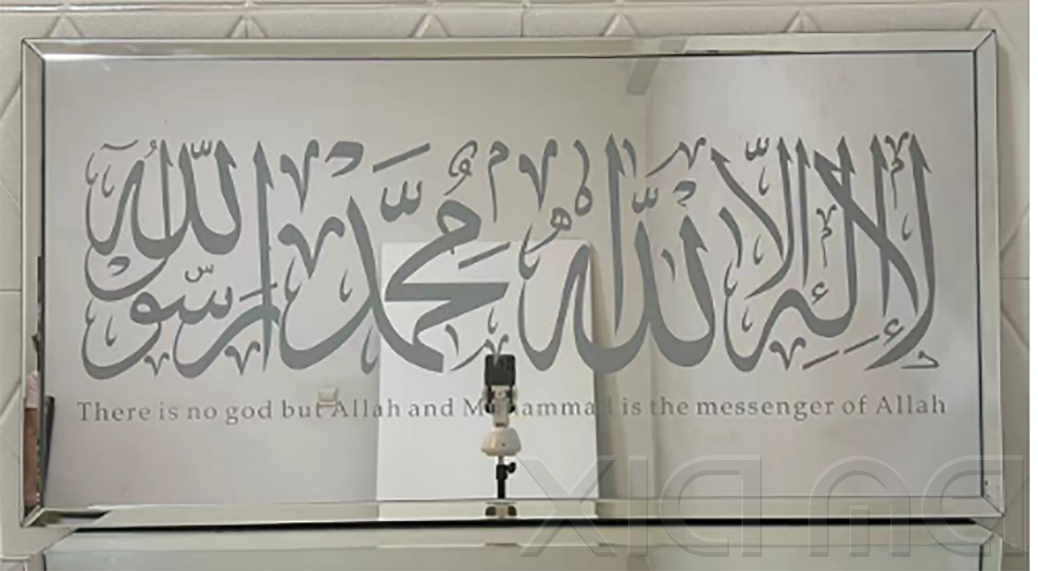 لا إله إلا الله محمد رسول الله
There is no god but Allah and Muhammad is the messenger of Allah
XIA MA